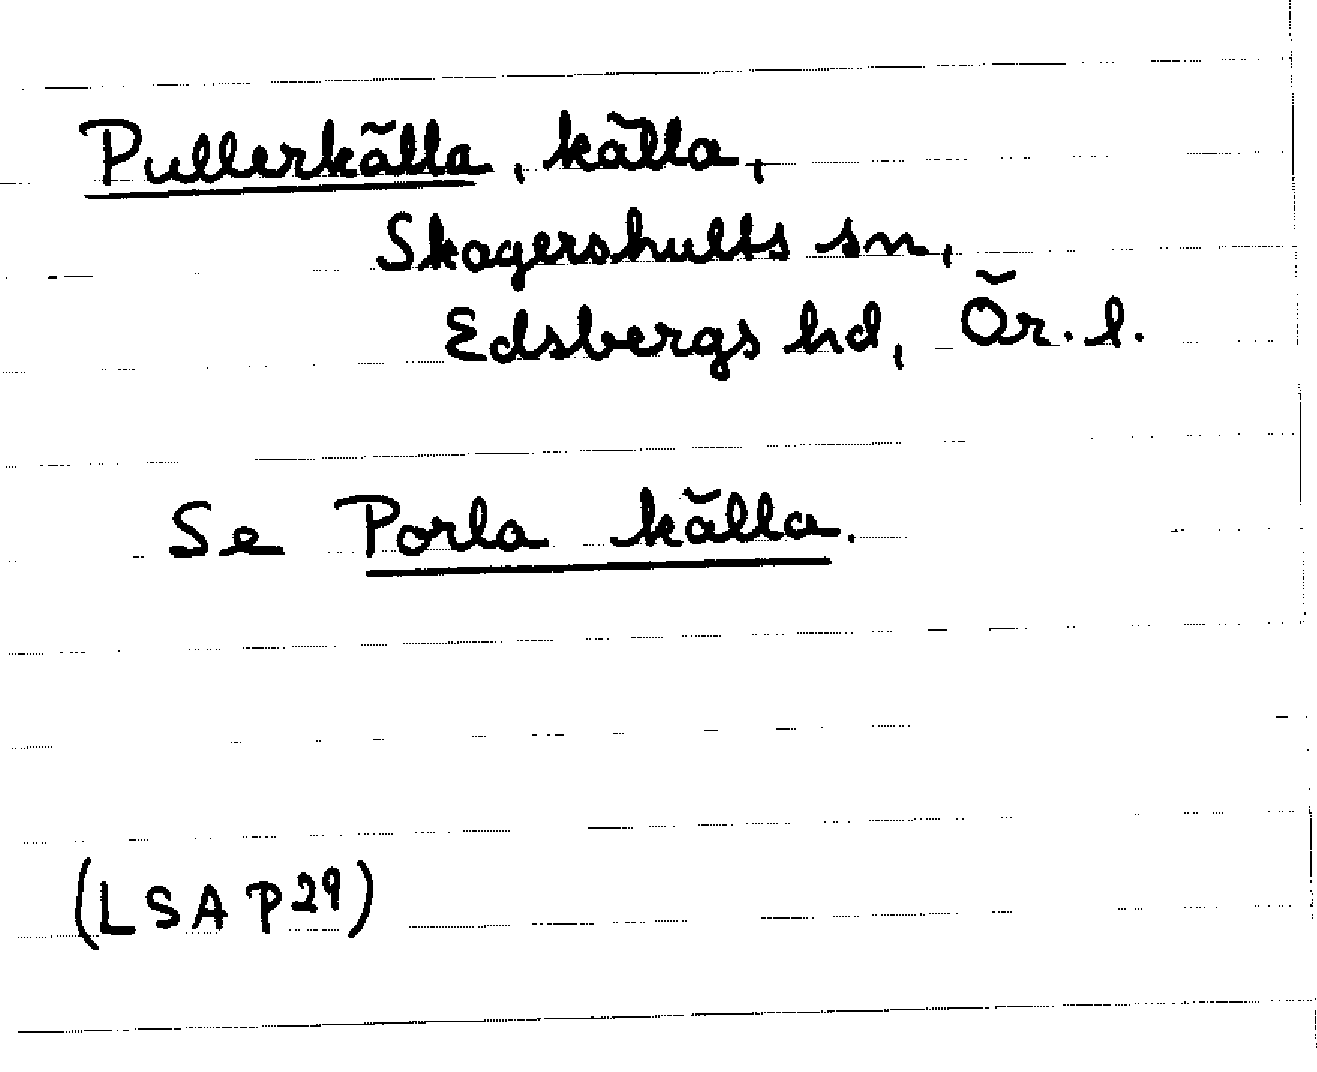 Pullerkälla, källa,
Skagershults sn,
Edsbergs hd, Ör. l.
Se Porla källa.
(LSA P29)